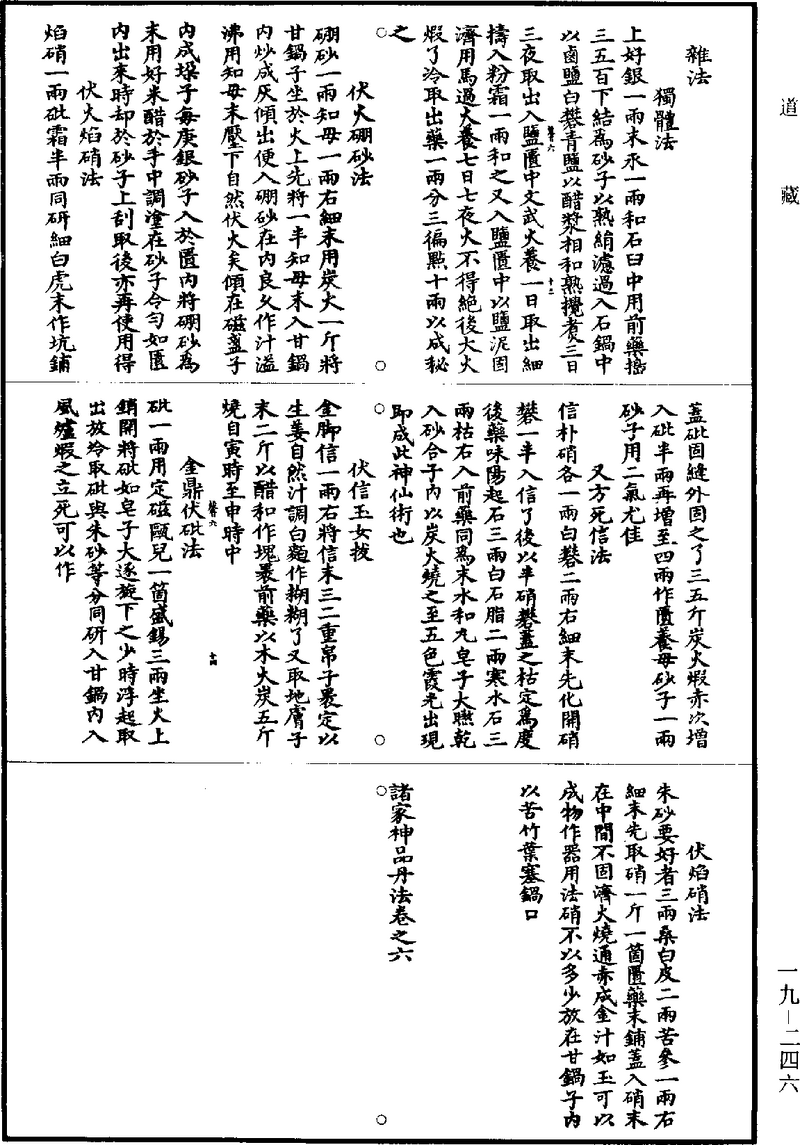 道藏
雜法
獨體法
上好銀一兩末汞一兩和石臼中用前藥搗
三五百下結為砂子以熟絹濾過入石鍋中
以鹵鹽白礬青鹽以醋漿相和熟攪煮三日
三夜取出入鹽匱中文武火養一日取出細
擣入粉霜一兩和之又入鹽匱中以鹽泥固
濟用馬過火養七日七夜火不得絕後大火
煆了冷取出藥一兩分三徧點十兩以成秘
之
伏火硼砂法
硼砂一兩知母一兩右細末用炭火一斤將
甘鍋子坐於火上先將一半知母末入甘鍋
內炒成灰傾出便入硼砂在內良久作汁溢
沸用知母末壓下自然伏火矣傾在磁盞子
內成垛子每庚銀砂子入於匱內將硼砂為
末用好米醋於手中調塗在砂子令勻如匱
內出來時却於砂子上刮取後亦再使用得
伏火焰硝法
焰硝一兩砒霜半兩同研細白虎末作坑鋪
蓋砒固縫外固之了三五斤炭火煆赤次增
入砒半兩再增至四兩作匱養母砂子一兩
砂子用二氣尤佳
又方死信法
信朴硝各一兩白礬二兩右細末先化開硝
礬一半入信了後以半硝礬蓋之枯定為度
後藥味陽起石三兩白石脂二兩寒水石三
兩枯右入前藥同為末水和丸皂子大㬠乾
入砂合子內以炭火繞之至五色霞光出現
即成此神仙術也
伏信玉女拔
金脚信一兩右將信末三二重帛子裹定以
生姜自然汁調白麵作糊糊了又取地膚子
末二斤以醋和作塊裹前藥以木火炭五斤
燒自寅時至申時中
金鼎伏砒法
砒一兩用定磁甌兒一箇盛錫三兩坐火上
銷開將砒如皂子大逐旋下之少時浮起取
出放冷取砒與朱砂等分同研入甘鍋內入
風爐煆之立死可以作
伏焰硝法
朱砂要好者三兩桑白皮二兩苦參一兩右
細末先取硝一斤一箇匱藥末鋪蓋入硝末
在中間不固濟火燒通赤成金汁如玉可以
成物作器用法硝不以多少放在甘鍋子內
以苦竹葉塞鍋口
諸家神品丹法卷之六
一九－二四六